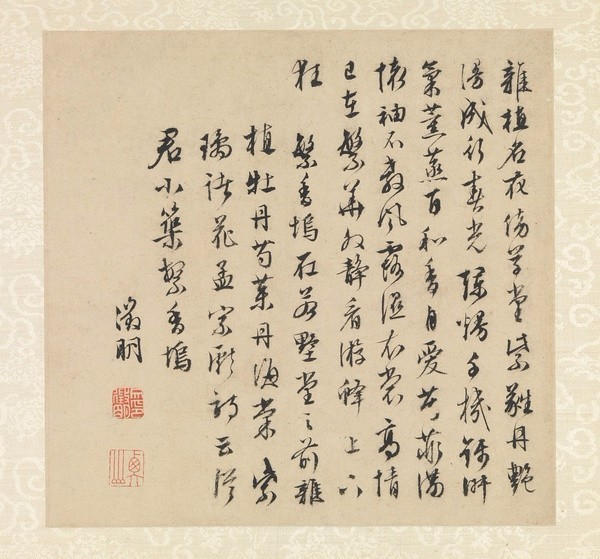 雜植名花傍草堂紫蕤丹艷
漫成行春光爛熳千機錦淑
氣薰蒸百和香自愛芳菲滿
懷袖不教風露濕衣裳高情
已在繁華外靜看游蜂上下
狂
繁香塢在若墅堂之前雜
植牡丹芍藥丹海棠紫
璚諸花孟宗獻詩云從
君小築繁香塢
徵明